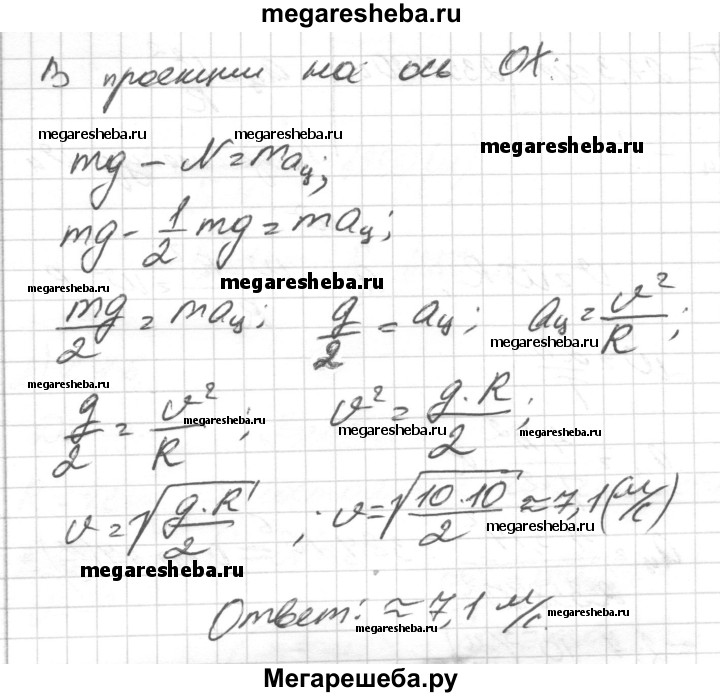 megaresheba.ru
В проекции на ось OX:
megaresheba.ru megaresheba.ru megaresheba.ru
mg - N = maц;
mg - 1/2 mg = maц;
megaresheba.ru megaresheba.ru
mg/2 = maц; g/2 = aц; aц = v²/R;
megaresheba.ru
megaresheba.ru
g/2 = v²/R; v² = g·R/2;
megaresheba.ru megaresheba.ru megaresheba.ru
v = √(g·R/2); v = √(10·10/2) ≈ 7,1 (м/с)
megaresheba.ru
megaresheba.ru
Ответ: ≈ 7,1 м/с.
megaresheba.ru megaresheba.ru
Мегарешеба.ру